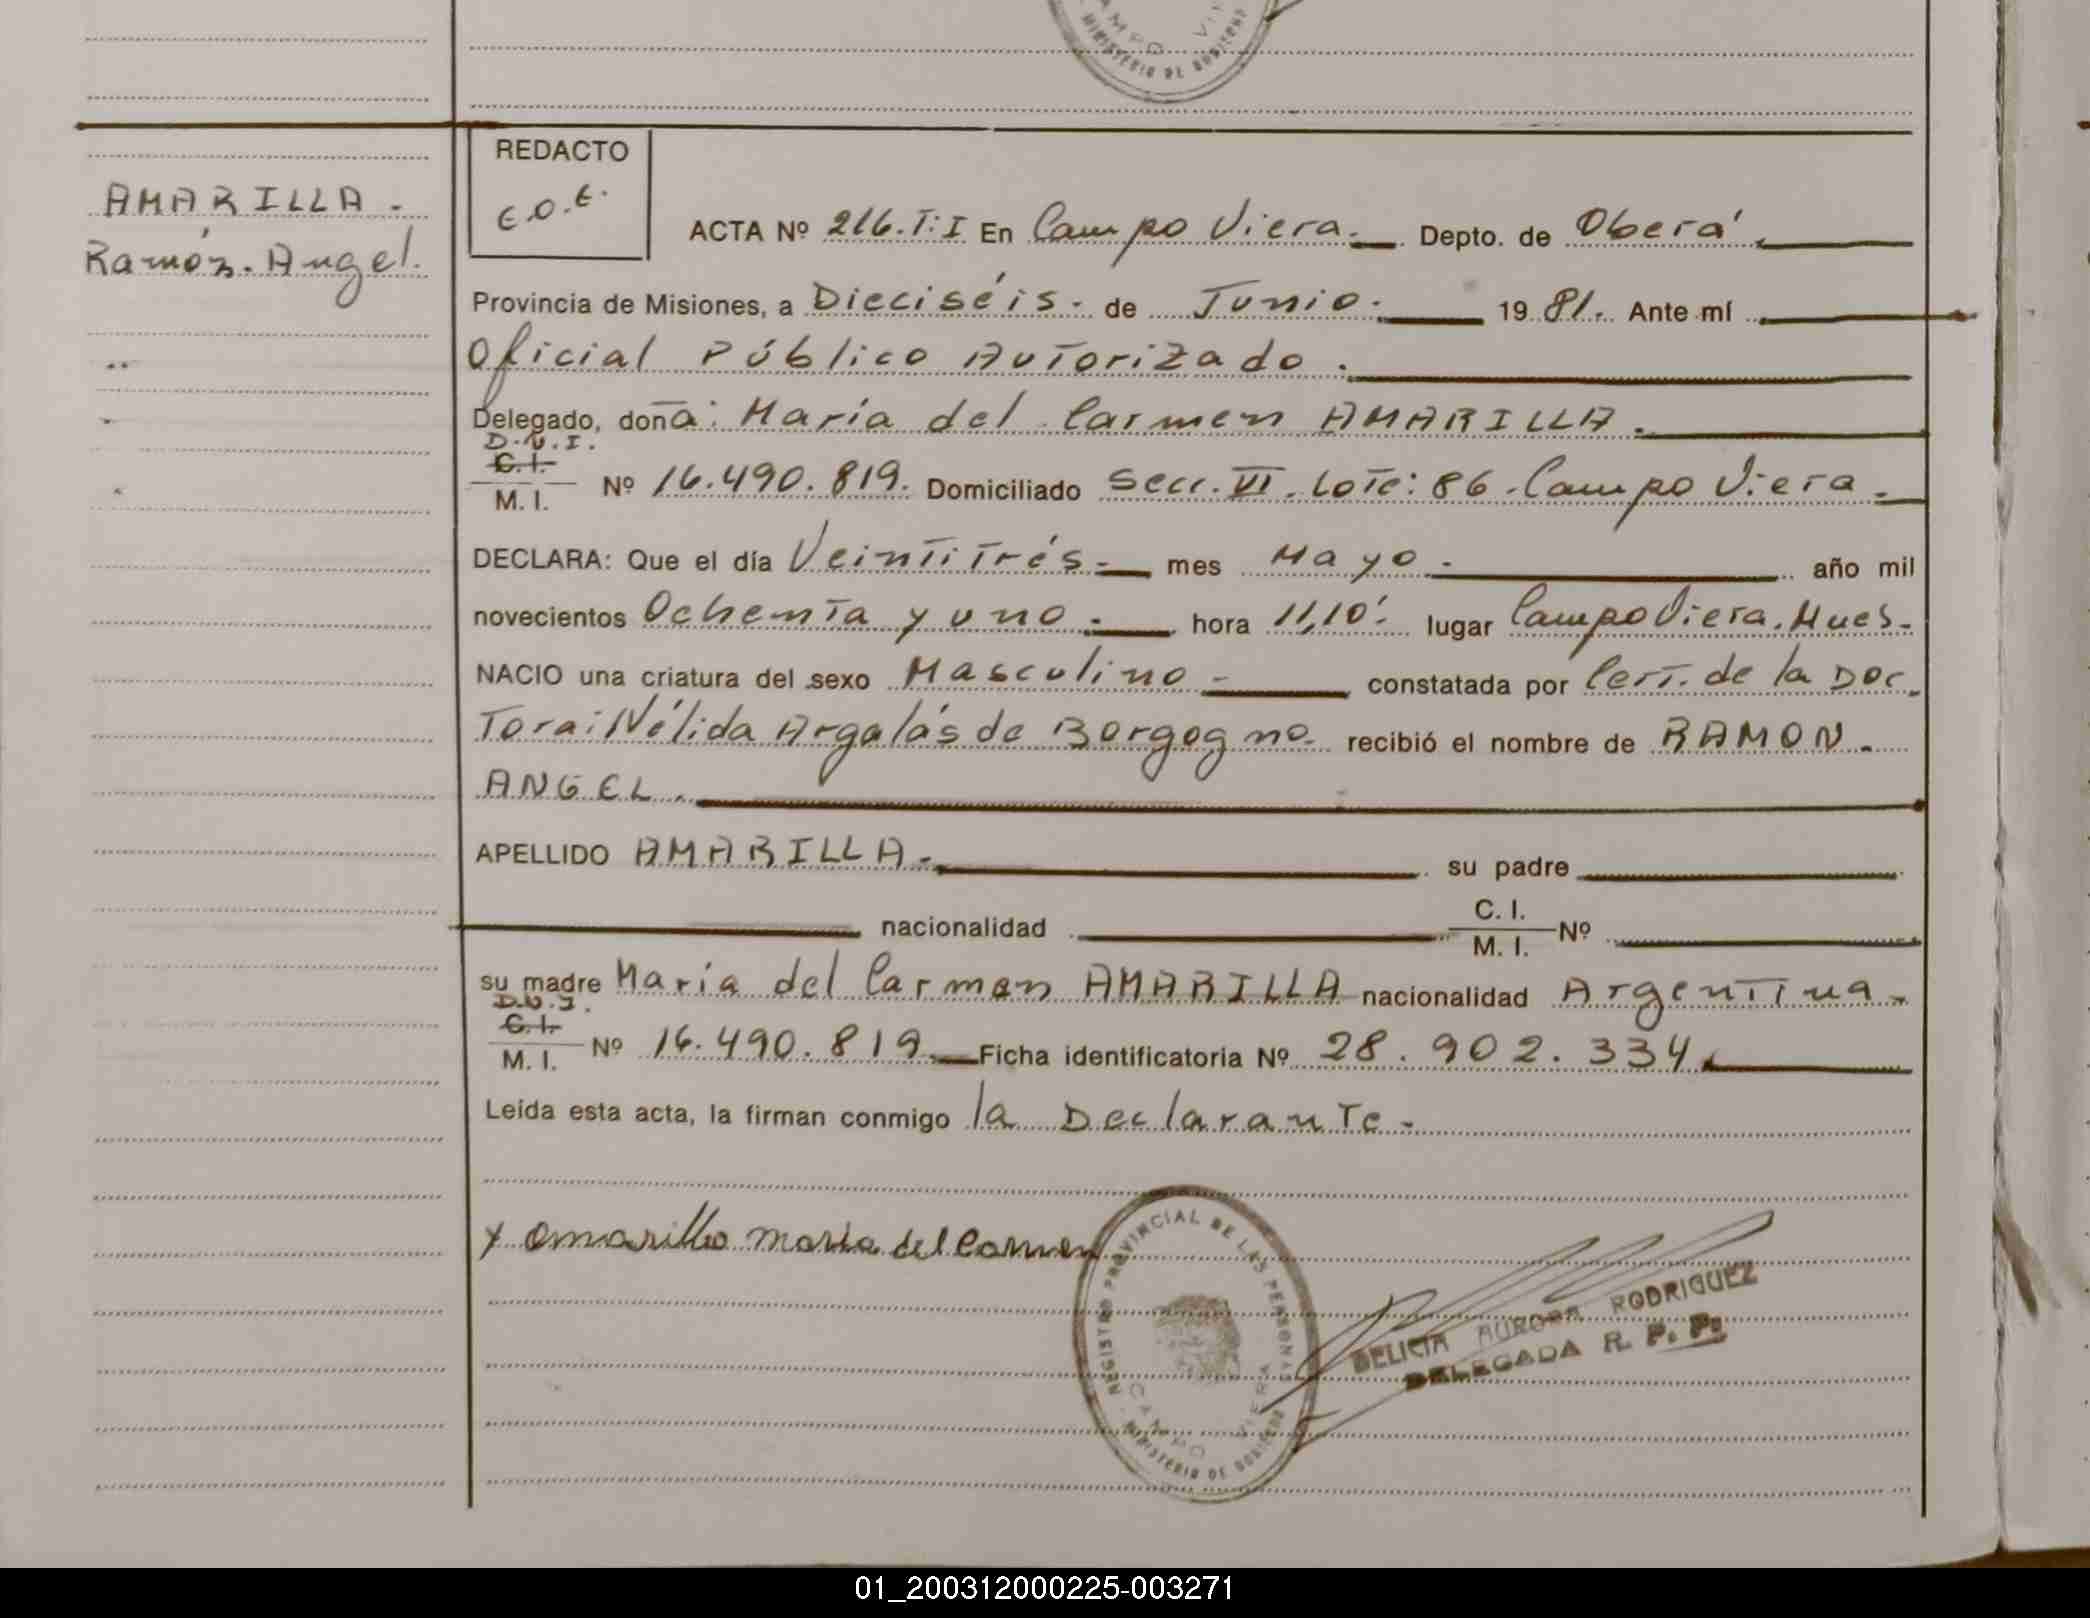 CAMPO VI
MINISTERIO DE GOBIERNO
AMARILLA -
Ramón. Angel.
REDACTO
E.O.E.
ACTA Nº 216.T:I En Campo Viera. Depto. de Oberá.
Provincia de Misiones, a Dieciséis. de Junio. 19 81. Ante mí
Oficial Público Autorizado.
Delegado, doña: María del Carmen AMARILLA.
D.N.I.
C.I.
M. I. Nº 16.490.819. Domiciliado Secc. VI. Lote: 86. Campo Viera.
DECLARA: Que el día Veintitrés- mes Mayo. año mil
novecientos Ochenta y uno. hora 11,10'. lugar Campo Viera. Mnes.
NACIO una criatura del sexo Masculino - constatada por Cert. de la Doc
Tora: Nélida Argalás de Borgogno. recibió el nombre de RAMON.
ANGEL.
APELLIDO AMARILLA.- su padre
nacionalidad C. I. M. I. Nº
su madre María del Carmen AMARILLA nacionalidad Argentina.
D.N.I.
C.I.
M. I. Nº 16.490.819. Ficha identificatoria Nº 28.902.334.
Leída esta acta, la firman conmigo la Declarante.
x Amarilla María del Carmen
REGISTRO PROVINCIAL DE LAS PERSONAS
CAMPO VIERA
MINISTERIO DE GOBIERNO
DELICIA AURORA RODRIGUEZ
DELEGADA R. P. P.
01_200312000225-003271